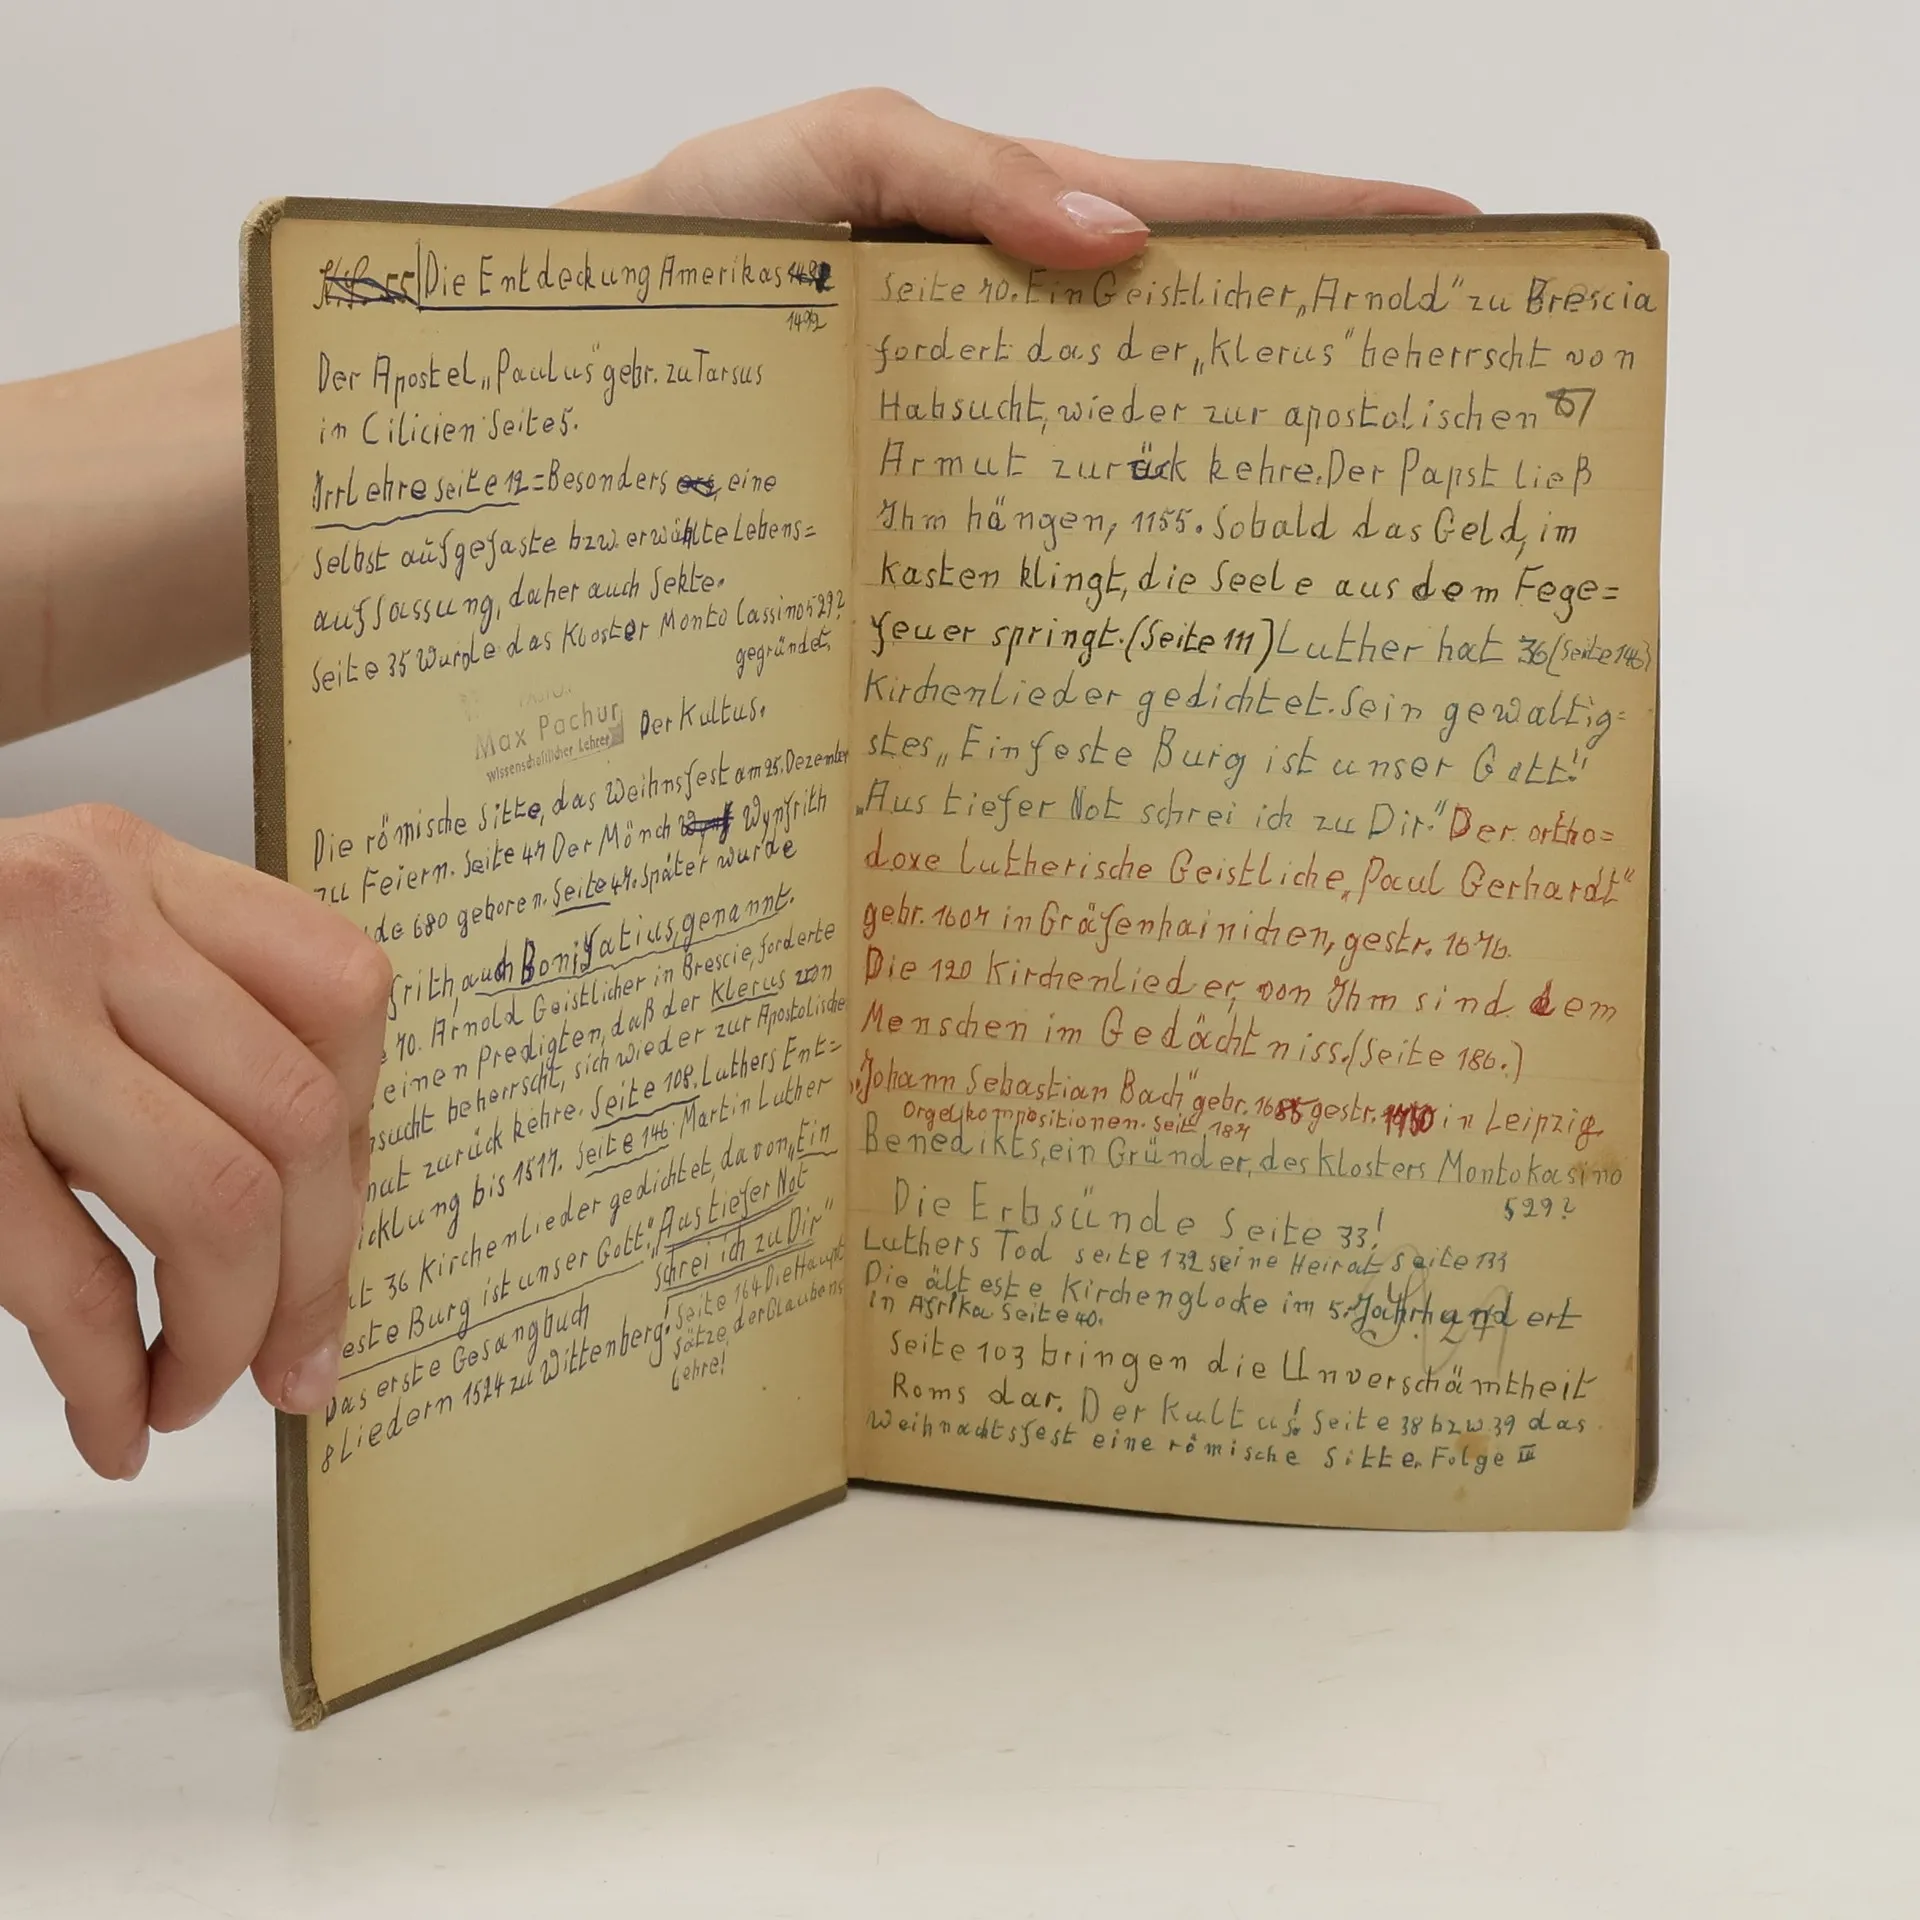 Die Entdeckung Amerikas
1492
Der Apostel „Paulus" gebr. zu Tarsus
in Cilicien Seite 5.
Irrlehre Seite 12 = Besonders eine
Selbst aufgefaste bzw. erwählte Lebens=
auffassung, daher auch Sekte.
Seite 35 Wurde das Kloster Monto Cassino 529?
gegründet.
Max Pachur
wissenschaftlicher Lehrer
Der Kultus.
Die römische Sitte, das Weihnsfest am 25. Dezember
zu Feiern. Seite 47 Der Mönch Wynfrith
de 680 geboren. Seite 47. Später wurde
frith, auch Bonifatius, genannt.
70. Arnold Geistlicher in Brescie, forderte
einen Predigten, daß der Klerus von
sucht beherrscht, sich wieder zur Apostolische
mut zurück kehre. Seite 108. Luthers Ent=
icklung bis 1517. Seite 146. Martin Luther
at 36 Kirchenlieder gedichtet, davon, „Ein
este Burg ist unser Gott." „Aus tiefer Not
Schrei ich zu Dir"
Das erste Gesangbuch
8 Liedern 1524 zu Wittenberg.
Seite 164 Die Haupt
Sätze, der Glaubens
Lehre!
Seite 70. Ein Geistlicher „Arnold" zu Brescia
fordert das der „Klerus" beherrscht von
Habsucht, wieder zur apostolischen
Armut zurück kehre. Der Papst ließ
Ihm hängen, 1155. Sobald das Geld, im
Kasten klingt, die Seele aus dem Fege=
feuer springt. (Seite 111) Luther hat 36 (Seite 146)
Kirchenlieder gedichtet. Sein gewaltig=
stes „Ein feste Burg ist unser Gott!"
„Aus tiefer Not schrei ich zu Dir." Der ortho=
doxe lutherische Geistliche „Paul Gerhardt"
gebr. 1607 in Gräfenhainichen, gestr. 1676.
Die 120 Kirchenlieder, von Ihm sind dem
Menschen im Gedächtniss. (Seite 186.)
„Johann Sebastian Bach" gebr. 1685 gestr. 1750 in Leipzig
Orgelkompositionen. Seite 187
Benedikts, ein Gründer, des Klosters Montokasino
529?
Die Erbsünde Seite 33!
Luthers Tod seite 132 seine Heirat Seite 133
Die älteste Kirchenglocke im 5. Jahrhundert
in Afrika Seite 40.
Seite 103 bringen die Unverschämtheit
Roms dar. Der Kultus! Seite 38 bzw 39 das
Weihnachtsfest eine römische Sitte. Folge III